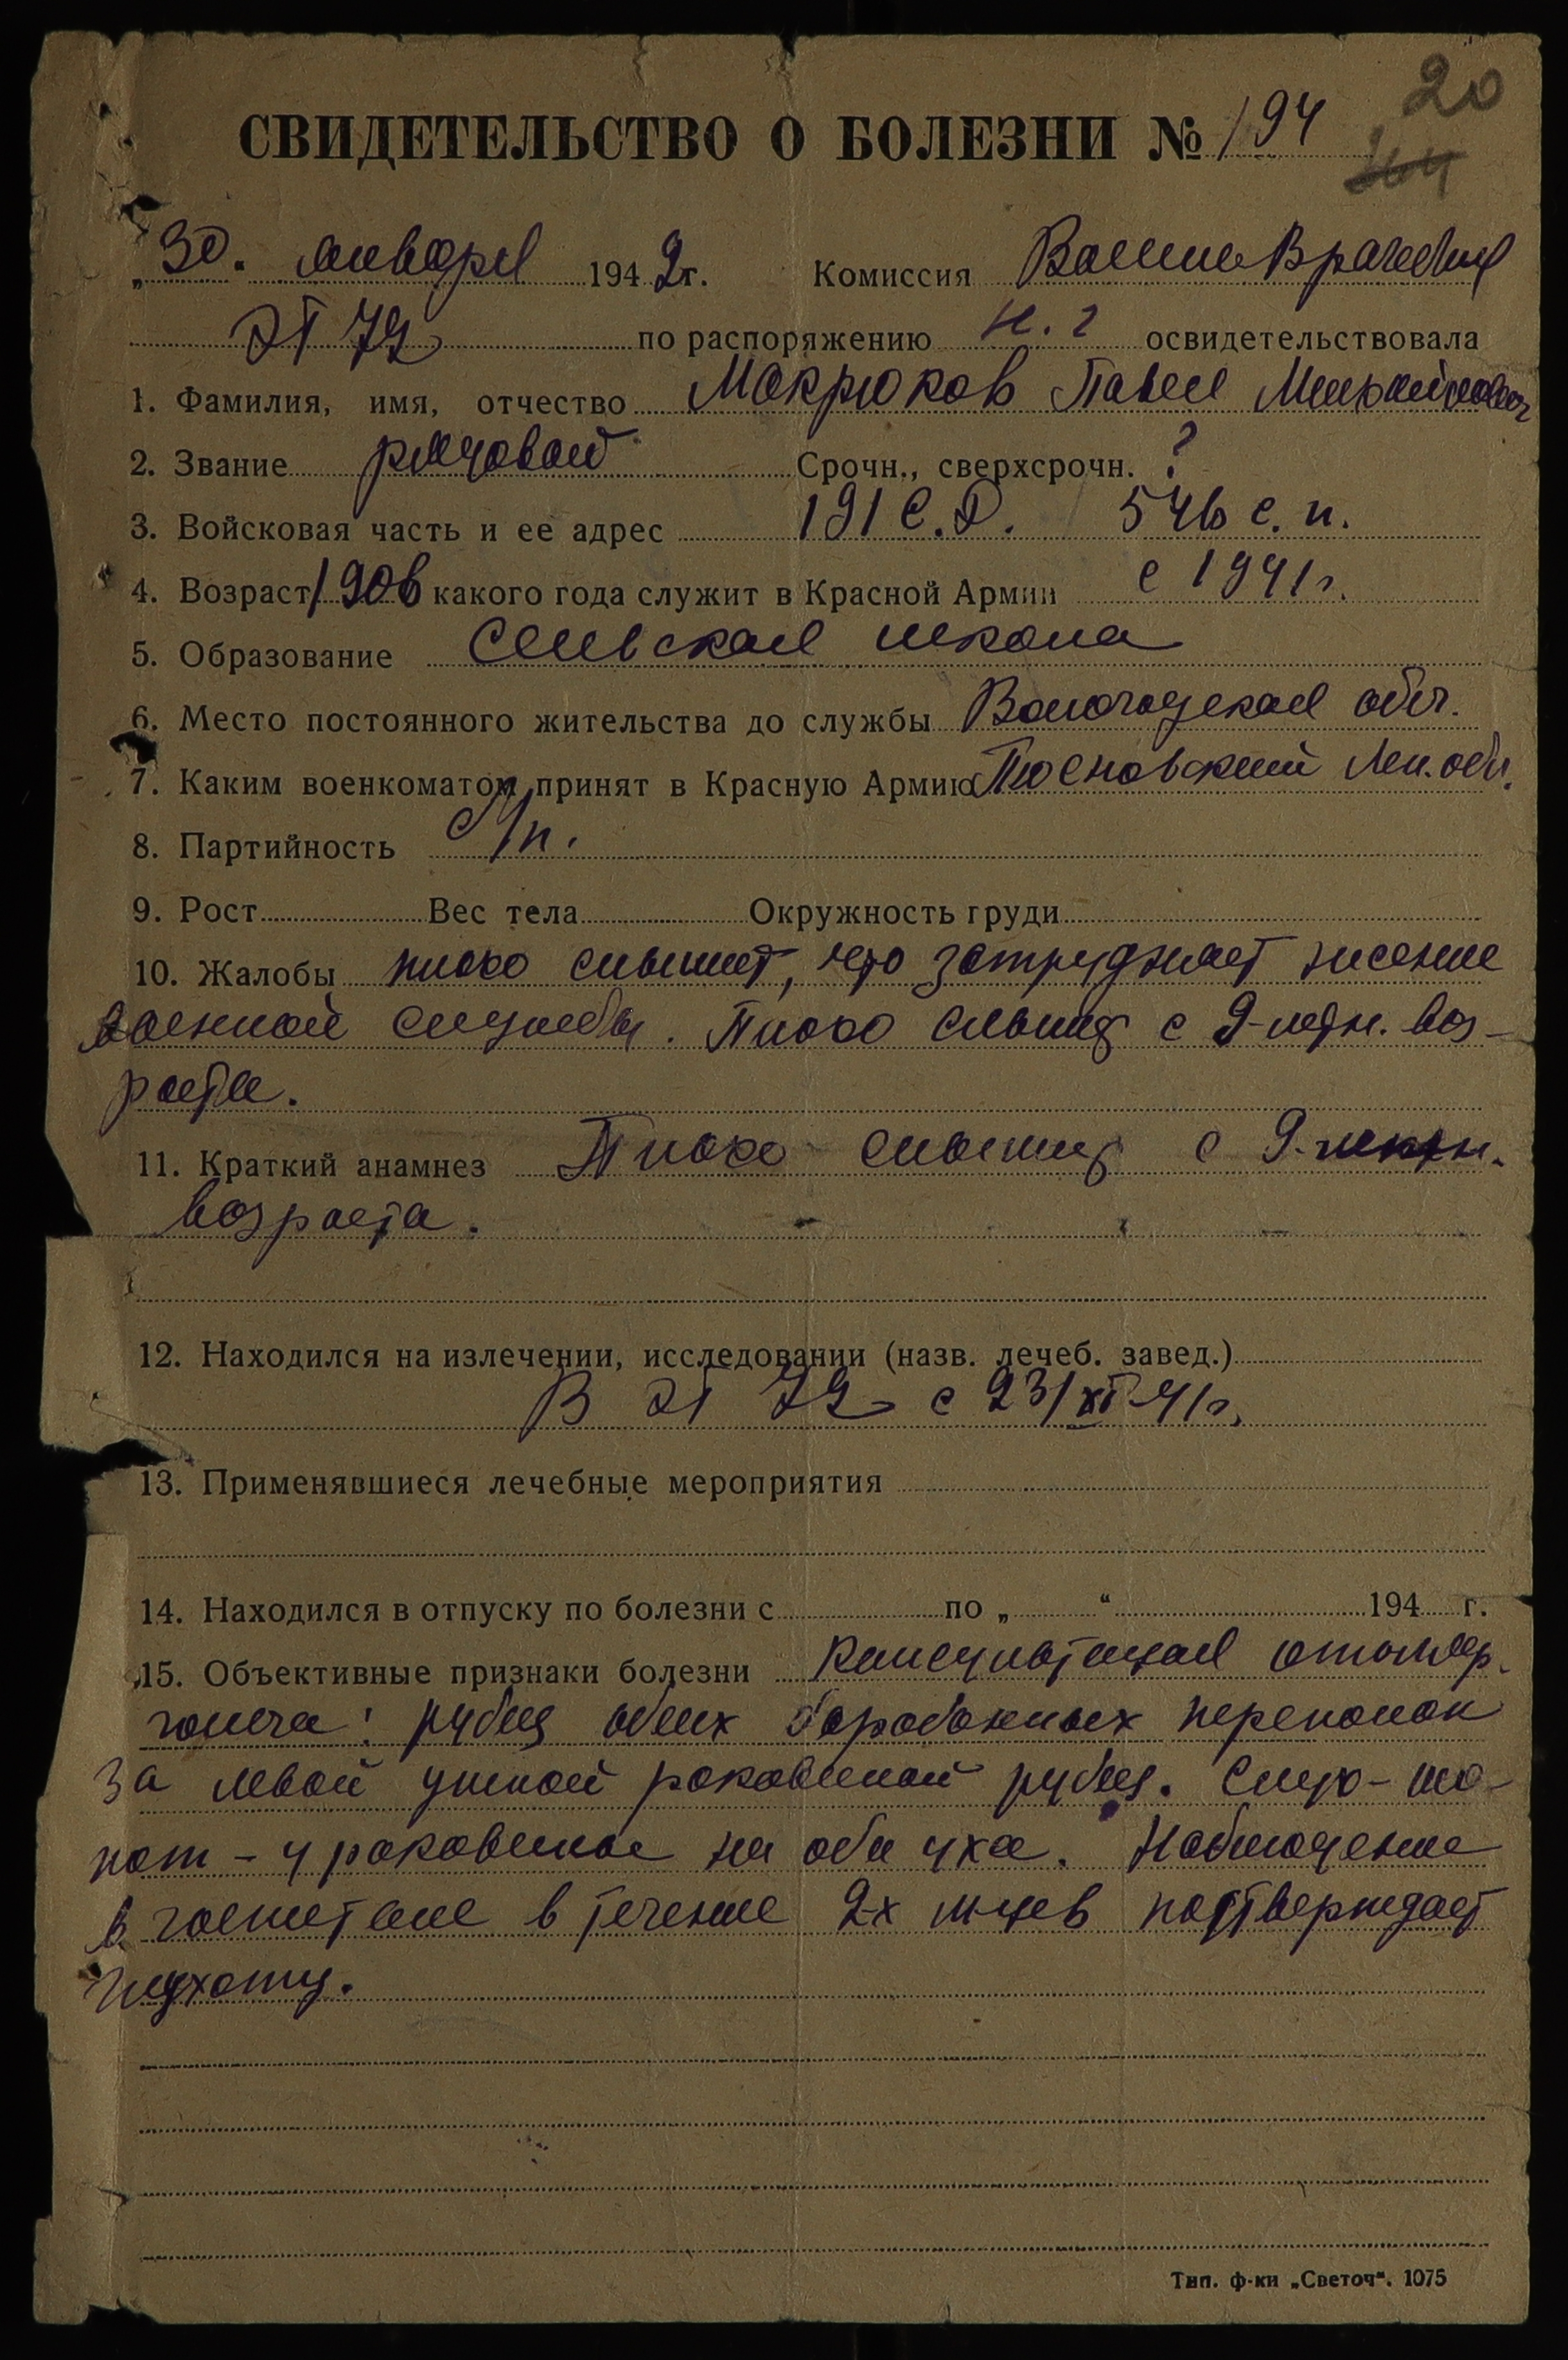 20
СВИДЕТЕЛЬСТВО О БОЛЕЗНИ № 194
„30. января 1942 г. Комиссия Военно Врачебная
ЭГ 72 по распоряжению н. г освидетельствовала
1. Фамилия, имя, отчество Мокрюков Павел Михайлович
2. Звание рядовой Срочн., сверхсрочн. ?
3. Войсковая часть и ее адрес 191 С.Д. 546 с. п.
4. Возраст 1906 какого года служит в Красной Армии с 1941 г.
5. Образование Сельская школа
6. Место постоянного жительства до службы Вологодская обл.
7. Каким военкоматом принят в Красную Армию Тосновский Лен. обл.
8. Партийность б/п.
9. Рост Вес тела Окружность груди
10. Жалобы плохо слышит, что затрудняет несение
военной службы. Плохо слышит с 9-летн. воз-
раста.
11. Краткий анамнез Плохо слышит с 9-летн.
возраста.
12. Находился на излечении, исследовании (назв. лечеб. завед.)
В ЭГ 72 с 23/XI-41 г.
13. Применявшиеся лечебные мероприятия
14. Находился в отпуску по болезни с по „ “ 194 г.
15. Объективные признаки болезни Консультация отоляр.
голога: рубец обеих барабанных перепонок
за левой ушной раковиной рубец. Слух - шо-
пот - у раковины на оба уха. Наблюдение
в госпитале в течение 2-х м-цев подтверждает
глухоту.
Тип. ф-ки „Светоч“. 1075